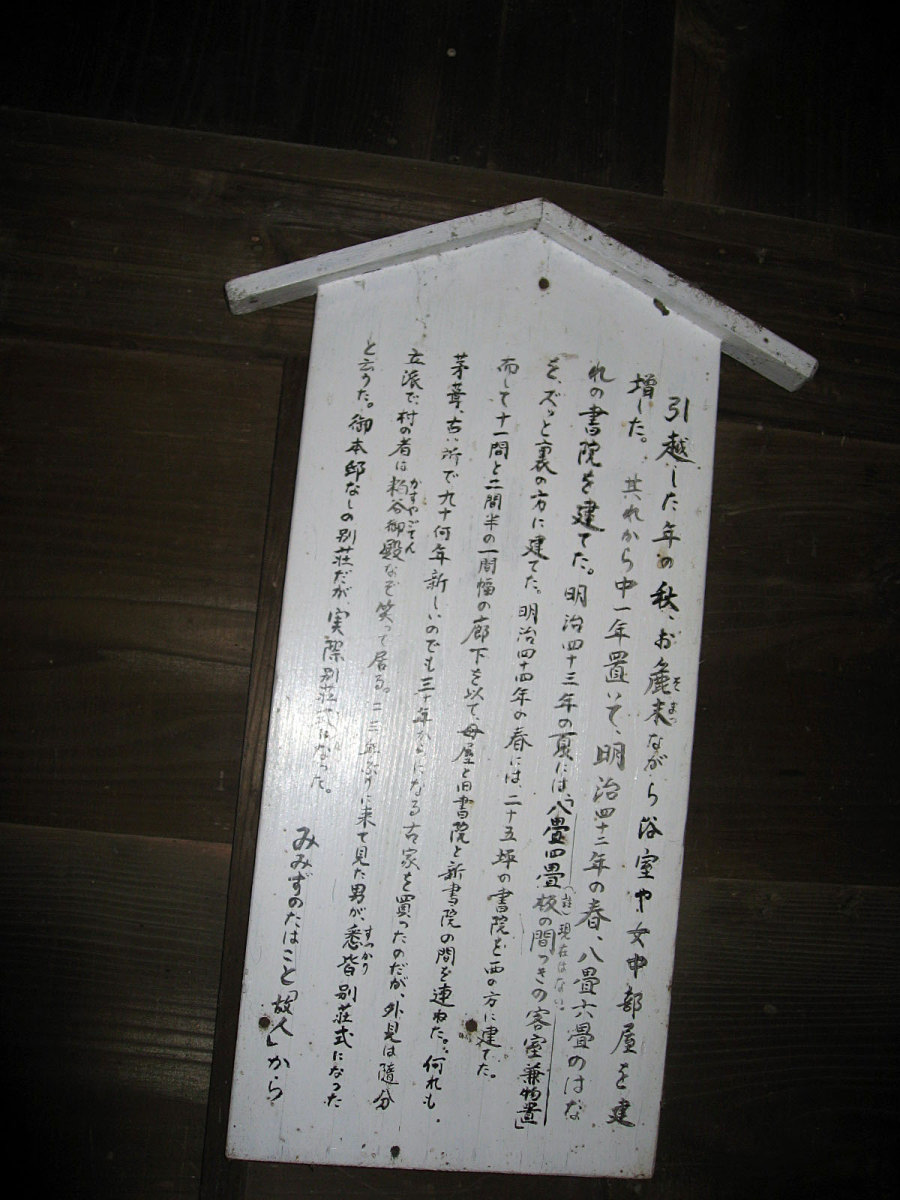 引越した年の秋、お麁末ながら浴室や女中部屋を建
そまつ
増した。其れから中一年置いて、明治四十二年の春、八畳六畳のはな
れの書院を建てた。明治四十三年の夏には、八畳四畳板の間つきの客室兼物置
(註)現在はない。
を、ズッと裏の方に建てた。明治四十四年の春には、二十五坪の書院を西の方に建てた。
而して十一間と二間半の一間幅の廊下を以て、母屋と旧書院と新書院の間を連ねた。何れも
茅葺、古い所で九十何年新しいのでも三十年からになる古家を買ったのだが、外見は随分
立派で、村の者は粕谷御殿なぞ笑って居る。二三年ぶりに来て見た男が、悉皆別荘式になった
かすやごてん
すっかり
と云うた。御本邸なしの別荘だが実際別荘式になった。
みみずのたはこと「故人」から